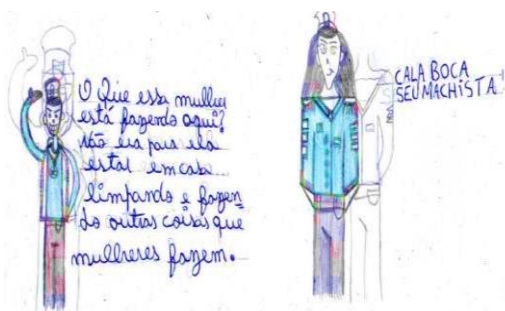 O Que essa mulher
está fazendo aqui?
Não era para ela
estar em casa
limpando e fazen
do outras coisas que
mulheres fazem.
CALA BOCA
SEU MACHISTA!